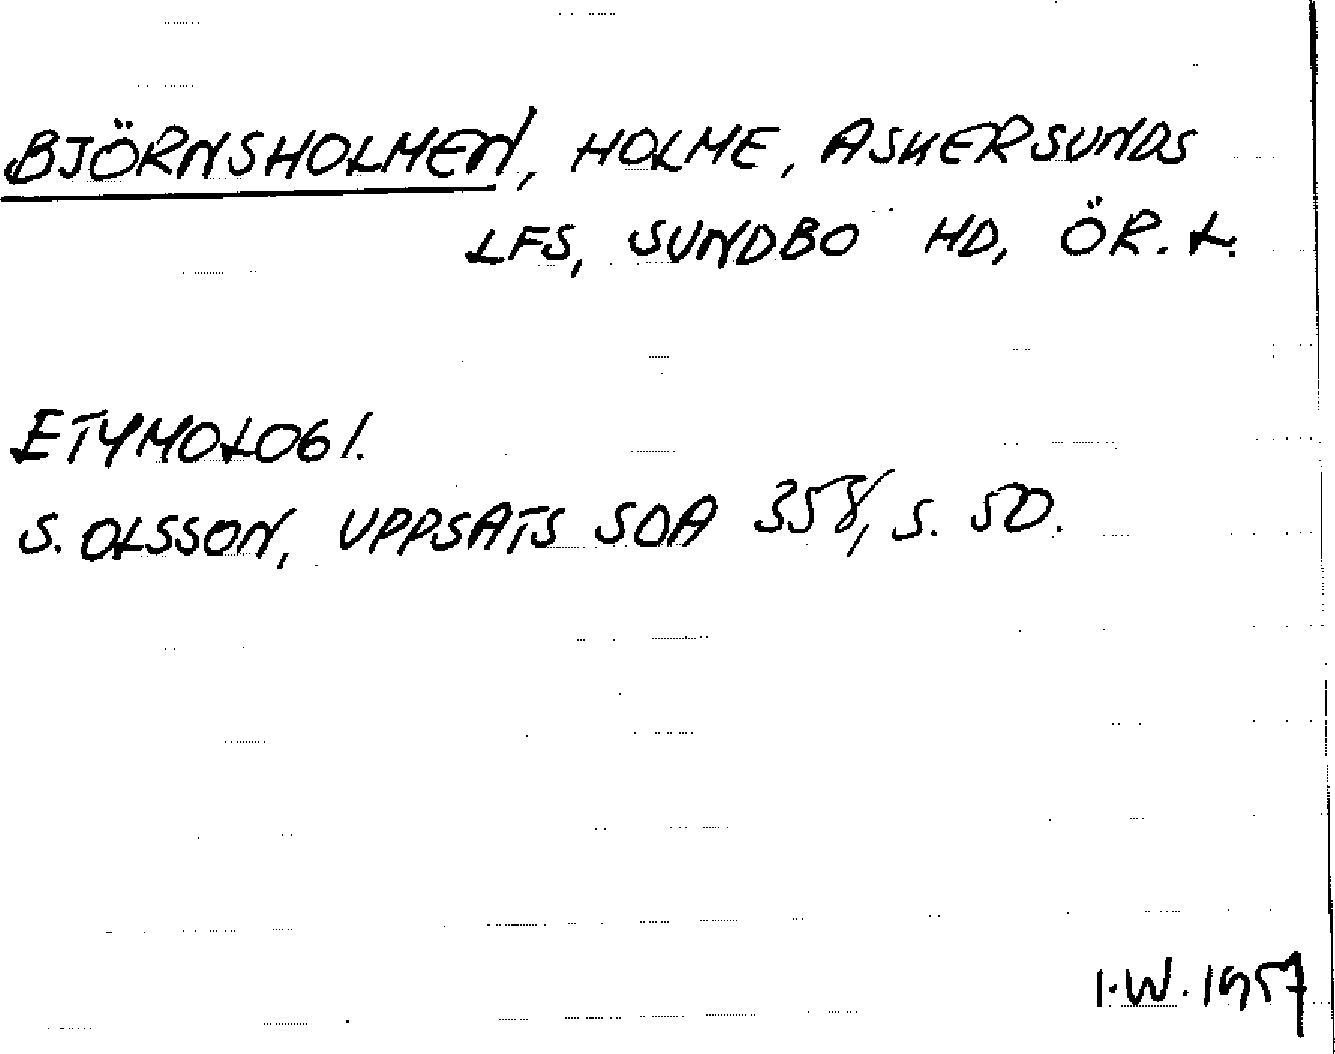 BJÖRNSHOLMEN, HOLME, ASKERSUNDS
LFS, SUNDBO HD, ÖR. L.
ETYMOLOGI.
S. OLSSON, UPPSATS SOA 358, S. 50.
I.W. 1957